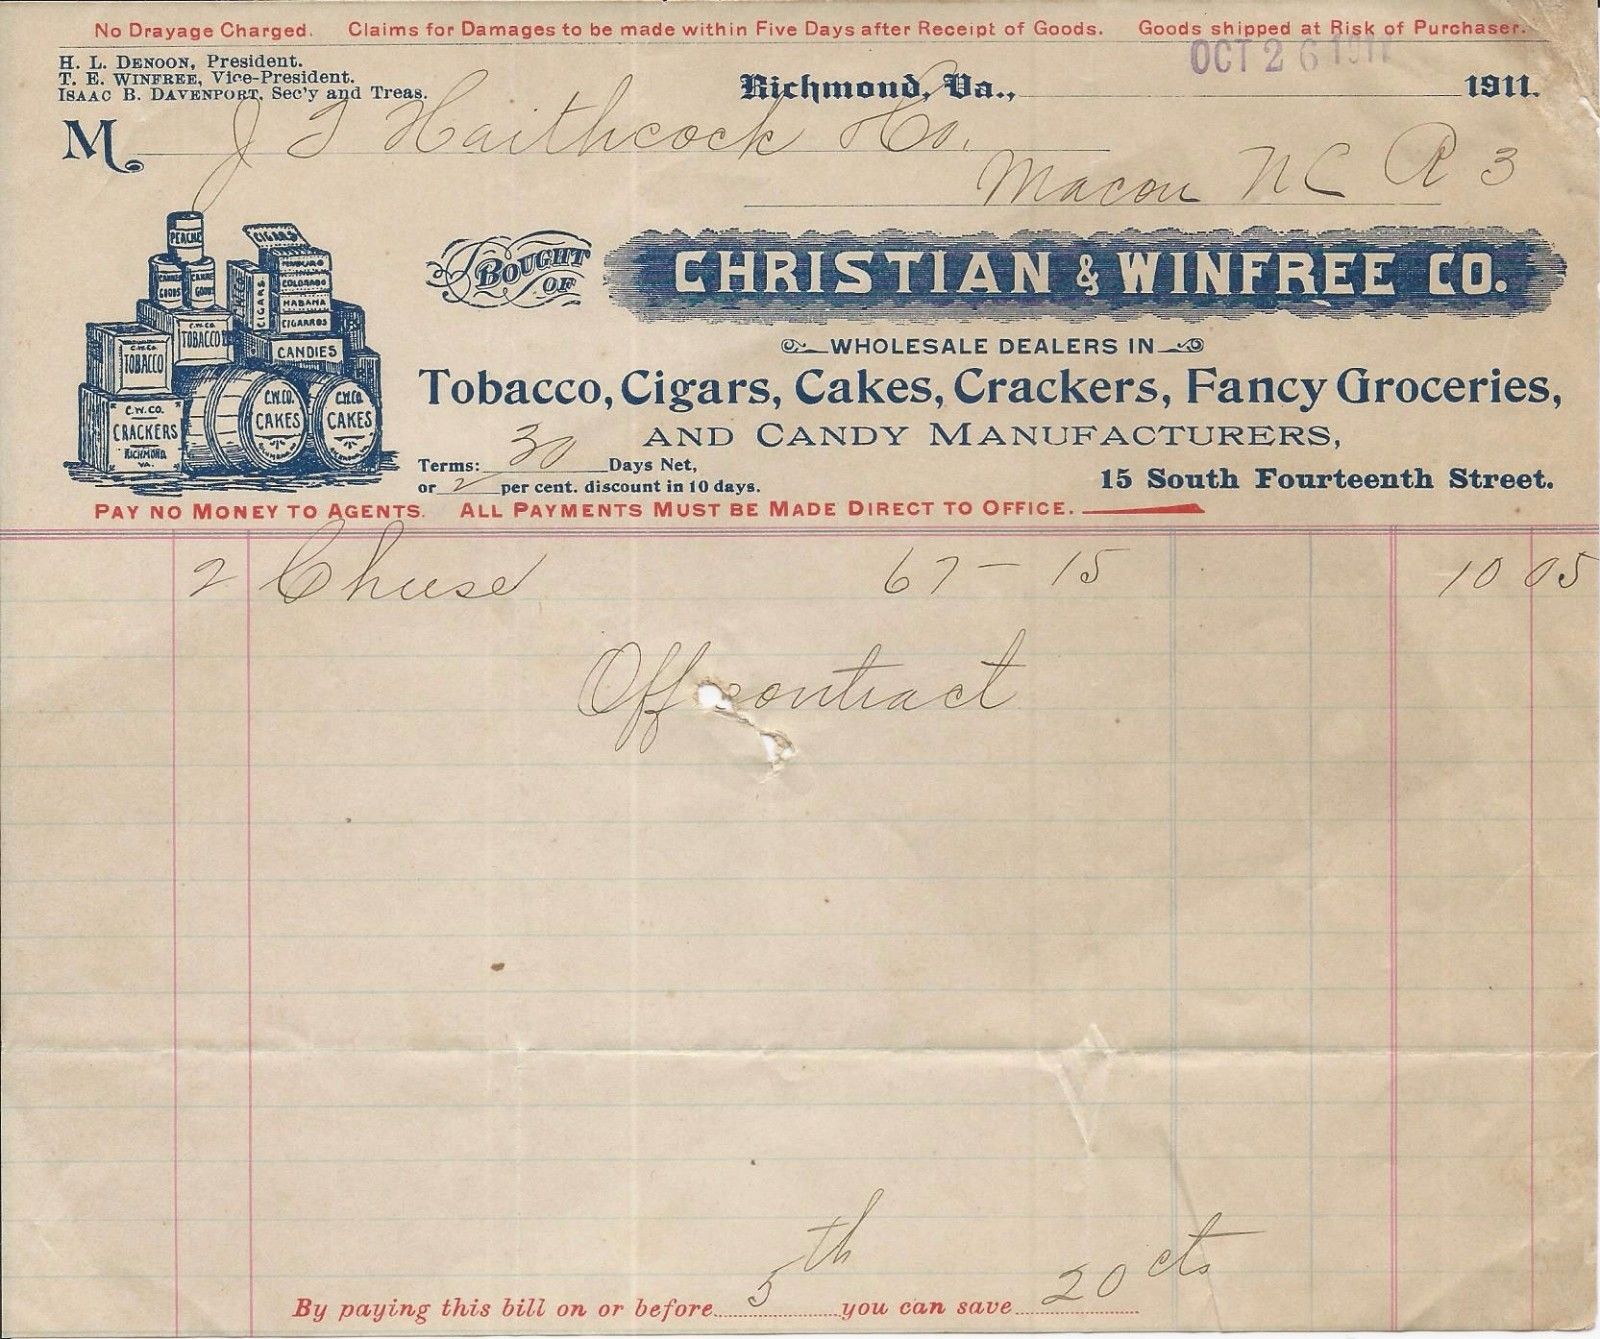 No Drayage Charged. Claims for Damages to be made within Five Days after Receipt of Goods. Goods shipped at Risk of Purchaser.
OCT 26 1911
H. L. DENOON, President.
T. E. WINFREE, Vice-President.
ISAAC B. DAVENPORT, Sec'y and Treas.
Richmond, Va., 1911.
M. J T Haithcock & Co.
Macon NC R 3
PEACHE
CANNED GOODS
CANNED GOODS
CIGARS
CIGARS
COLORADO
HABANA
CIGARROS
C.W.CO. TOBACCO
TOBACCO
CANDIES
C.W.CO. CRACKERS RICHMOND VA.
C.W.CO. CAKES
C.W.CO. CAKES
BOUGHT OF
CHRISTIAN & WINFREE CO.
WHOLESALE DEALERS IN
Tobacco, Cigars, Cakes, Crackers, Fancy Groceries,
AND CANDY MANUFACTURERS,
Terms: 30 Days Net,
or 2 per cent. discount in 10 days.
15 South Fourteenth Street.
PAY NO MONEY TO AGENTS. ALL PAYMENTS MUST BE MADE DIRECT TO OFFICE.
2 Cheese 67 - 15 10 05
Off contract
By paying this bill on or before 5th you can save 20 cts